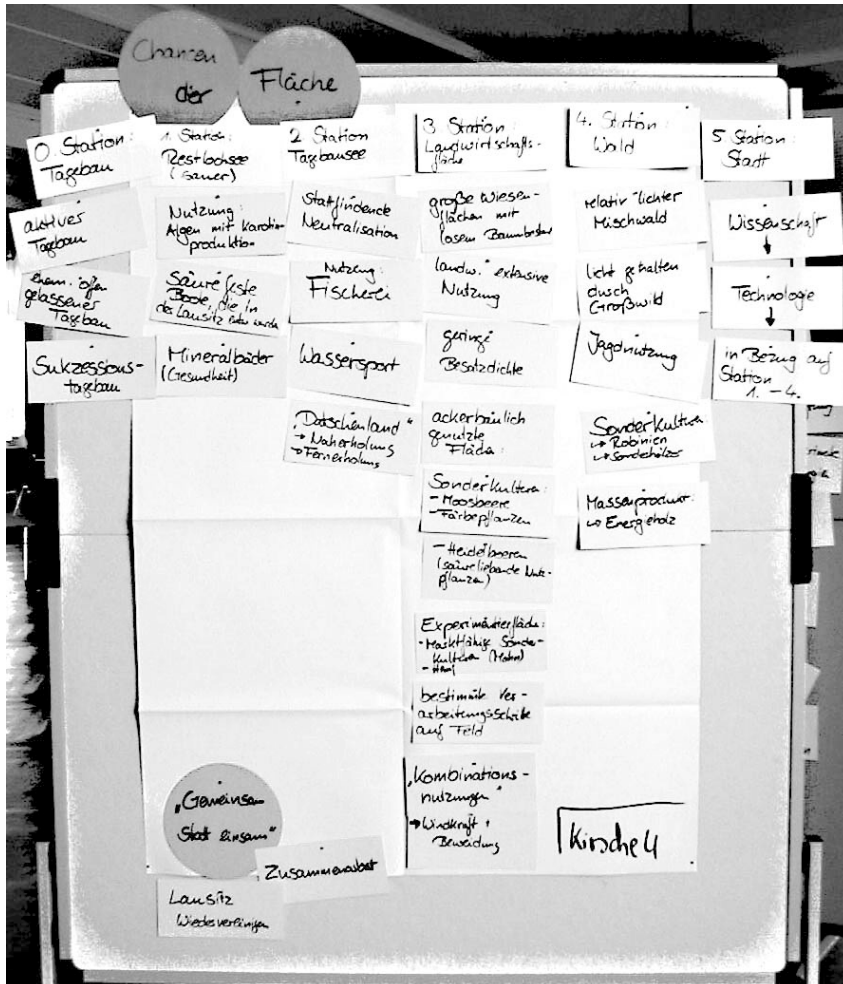 Chancen
der
Fläche
0. Station:
Tagebau
aktiver
Tagebau
ehem. offen
gelassener
Tagebau
Sukzessions-
tagebau
1. Station:
Restlochsee
(sauer)
Nutzung:
Algen mit Karotin-
produktion
Säurefeste
Boote, die in
der Lausitz
Mineralbäder
(Gesundheit)
2 Station
Tagebausee
Stattfindende
Neutralisation
Nutzung:
Fischerei
Wassersport
„Datschenland"
→ Naherholung
→ Fernerholung
3. Station:
Landwirtschafts-
fläche
große Wiesen-
flächen mit
losem Baumbestand
landw. extensive
Nutzung
geringe
Besatzdichte
ackerbaulich
genutzte
Fläche:
Sonderkulturen:
- Moosbeere
- Färbepflanzen
- Heidelbeeren
(säureliebende Nutz-
pflanzen)
Experimentierfläche:
- Marktfähige Sonder-
kulturen (Mohn)
- Hanf
bestimmte Ver-
arbeitungsschritte
auf Feld
„Kombinations-
nutzungen"
→ Windkraft +
Beweidung
4. Station:
Wald
relativ lichter
Mischwald
licht gehalten
durch
Großwild
Jagdnutzung
Sonderkulturen
↪ Robinien
↪ Sonderhölzer
Massenprodukt:
↪ Energieholz
5. Station:
Stadt
Wissenschaft
↓
Technologie
↓
in Bezug auf
Station
1. - 4.
„Gemeinsam
Statt einsam"
Zusammenarbeit
Lausitz
Wiedervereinigen
Kirsche 4